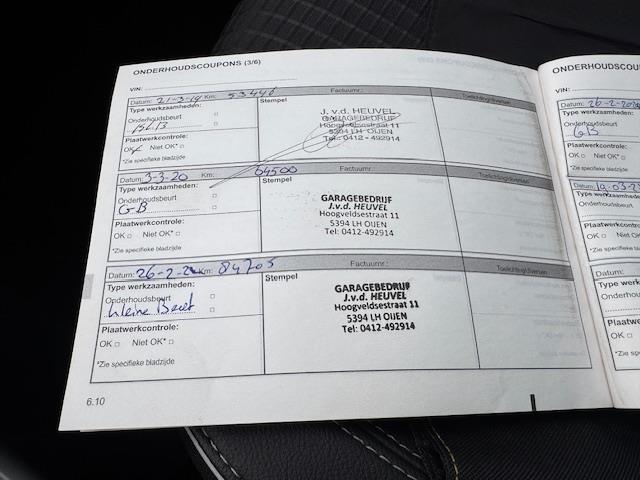 ONDERHOUDSCOUPONS (3/6)
VIN:
Datum: 21-3-19 Km: 53446 Factuurnr.: Toelichting/diversen
Type werkzaamheden: Stempel
Onderhoudsbeurt
Plaatwerkcontrole:
OK Niet OK*
*Zie specifieke bladzijde
J. v.d. HEUVEL
GARAGEBEDRIJF
Hoogveldsestraat 11
5394 LH OIJEN
Tel.: 0412-492914
Datum: 3-3-20 Km: 64500 Factuurnr.: Toelichting/diversen
Type werkzaamheden: Stempel
Onderhoudsbeurt
GB
Plaatwerkcontrole:
OK Niet OK*
*Zie specifieke bladzijde
GARAGEBEDRIJF
J.v.d. HEUVEL
Hoogveldsestraat 11
5394 LH OIJEN
Tel: 0412-492914
Datum: 26-2- Km: 84703 Factuurnr.: Toelichting/diversen
Type werkzaamheden: Stempel
Onderhoudsbeurt
kleine Beurt
Plaatwerkcontrole:
OK Niet OK*
*Zie specifieke bladzijde
GARAGEBEDRIJF
J.v.d. HEUVEL
Hoogveldsestraat 11
5394 LH OIJEN
Tel: 0412-492914
6.10
ONDERHOUDSCOU
VIN:
Datum: 26-2-202
Type werkzaamhe
Onderhoudsbeurt
GB
Plaatwerkcontrole:
OK Niet OK*
*Zie specifieke bladz
Datum:
Type werkzaamhe
Onderhoudsbeurt
Plaatwerkcontrole:
OK Niet OK*
*Zie specifieke bl
Datum:
Type werkzaam
Onderhoudsbeurt
Plaatwerkcontro
OK Niet
*Zie specifieke